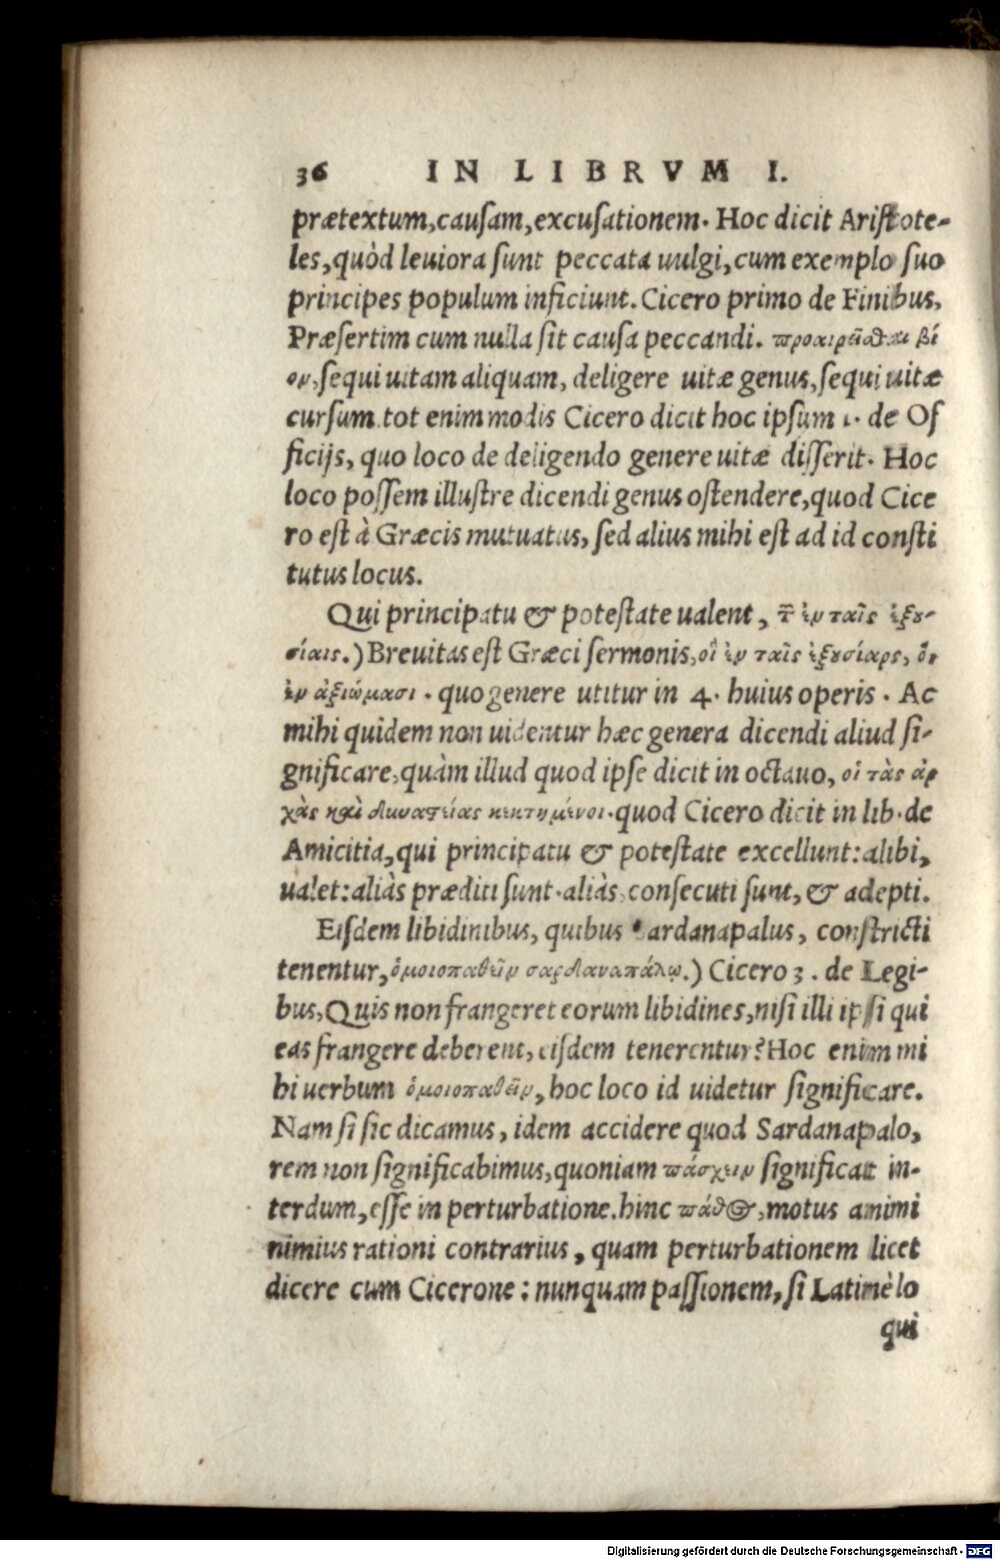 36 IN LIBRVM I.
prætextum, cauſam, excuſationem. Hoc dicit Ariſtote-
les, quòd leuiora ſunt peccata uulgi, cum exemplo ſuo
principes populum inficiunt. Cicero primo de Finibus,
Præſertim cum nulla ſit cauſa peccandi. προαιρεῖσθαι βί
ον, ſequi uitam aliquam, deligere uitæ genus, ſequi uitæ
curſum. tot enim modis Cicero dicit hoc ipſum 1. de Of
ficijs, quo loco de deligendo genere uitæ diſſerit. Hoc
loco poſſem illuſtre dicendi genus oſtendere, quod Cice
ro eſt à Græcis mutuatus, ſed alius mihi eſt ad id conſti
tutus locus.
Qui principatu & poteſtate ualent, τ̃ ἐν ταῖς ἐξου-
σίαις.) Breuitas eſt Græci ſermonis, οἱ ἐν ταῖς ἐξουσίαις, οἱ
ἐν ἀξιώμασι. quo genere utitur in 4. huius operis. Ac
mihi quidem non uidentur hæc genera dicendi aliud ſi-
gnificare, quàm illud quod ipſe dicit in octauo, οἱ τὰς ἀρ
χὰς καὶ δυναστείας κεκτημένοι. quod Cicero dicit in lib. de
Amicitia, qui principatu & poteſtate excellunt: alibi,
ualet: aliàs præditi ſunt. aliàs, conſecuti ſunt, & adepti.
Eiſdem libidinibus, quibus Sardanapalus, conſtricti
tenentur, ὁμοιοπαθεῖν σαρδαναπάλῳ.) Cicero 3. de Legi-
bus, Quis non frangeret eorum libidines, niſi illi ipſi qui
eas frangere deberent, eiſdem tenerentur? Hoc enim mi
hi uerbum ὁμοιοπαθεῖν, hoc loco id uidetur ſignificare.
Nam ſi ſic dicamus, idem accidere quod Sardanapalo,
rem non ſignificabimus, quoniam πάσχειν ſignificat in-
terdum, eſſe in perturbatione. hinc πάθος, motus animi
nimius rationi contrarius, quam perturbationem licet
dicere cum Cicerone: nunquam paſſionem, ſi Latinè lo
qui
Digitalisierung gefördert durch die Deutsche Forschungsgemeinschaft - DFG